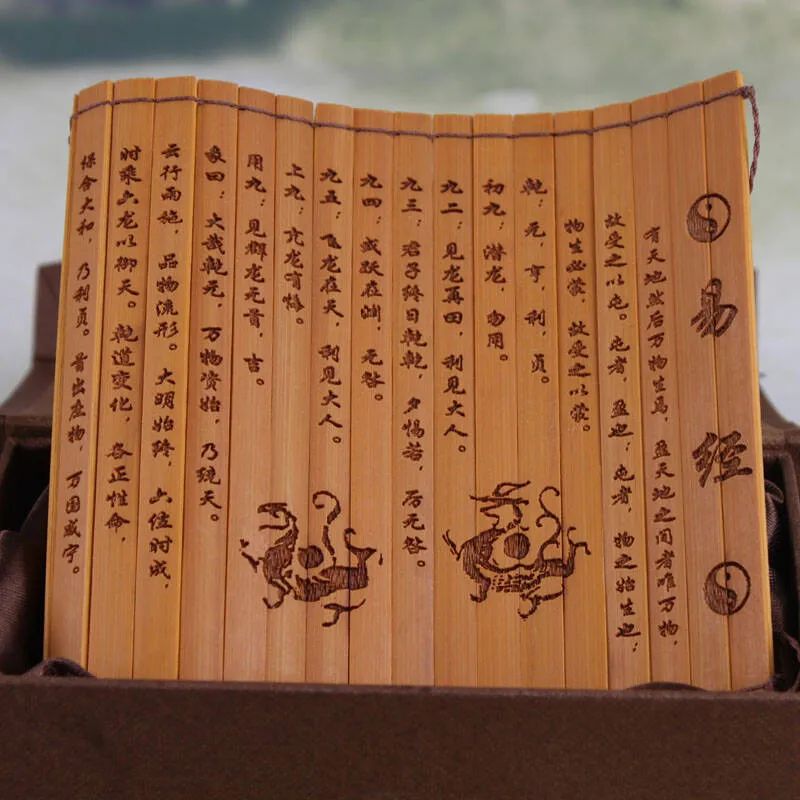 易经
有天地然后万物生焉，盈天地之间者唯万物，
故受之以屯。屯者，盈也；屯者，物之始生也；
物生必蒙，故受之以蒙。
乾，元，亨，利，贞。
初九：潜龙，勿用。
九二：见龙再田，利见大人。
九三：君子终日乾乾，夕惕若，厉无咎。
九四：或跃在渊，无咎。
九五：飞龙在天，利见大人。
上九：亢龙有悔。
用九：见群龙无首，吉。
彖曰：大哉乾元，万物资始，乃统天。
云行雨施，品物流形。大明始终，六位时成，
时乘六龙以御天。乾道变化，各正性命，
保合大和，乃利贞。首出庶物，万国咸宁。